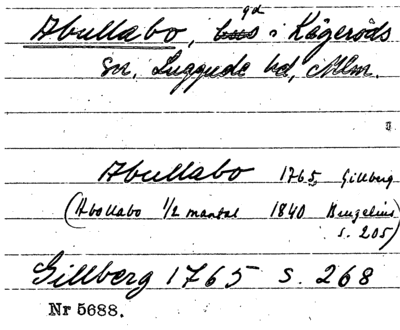 Abullabo, gd i Kågeröds
sn, Luggude hd, Mlm.
Abullabo 1765 Gillberg
(Abollabo 1/2 mantal 1840 Bengelius
s. 205)
Gillberg 1765 s. 268
Nr 5688.